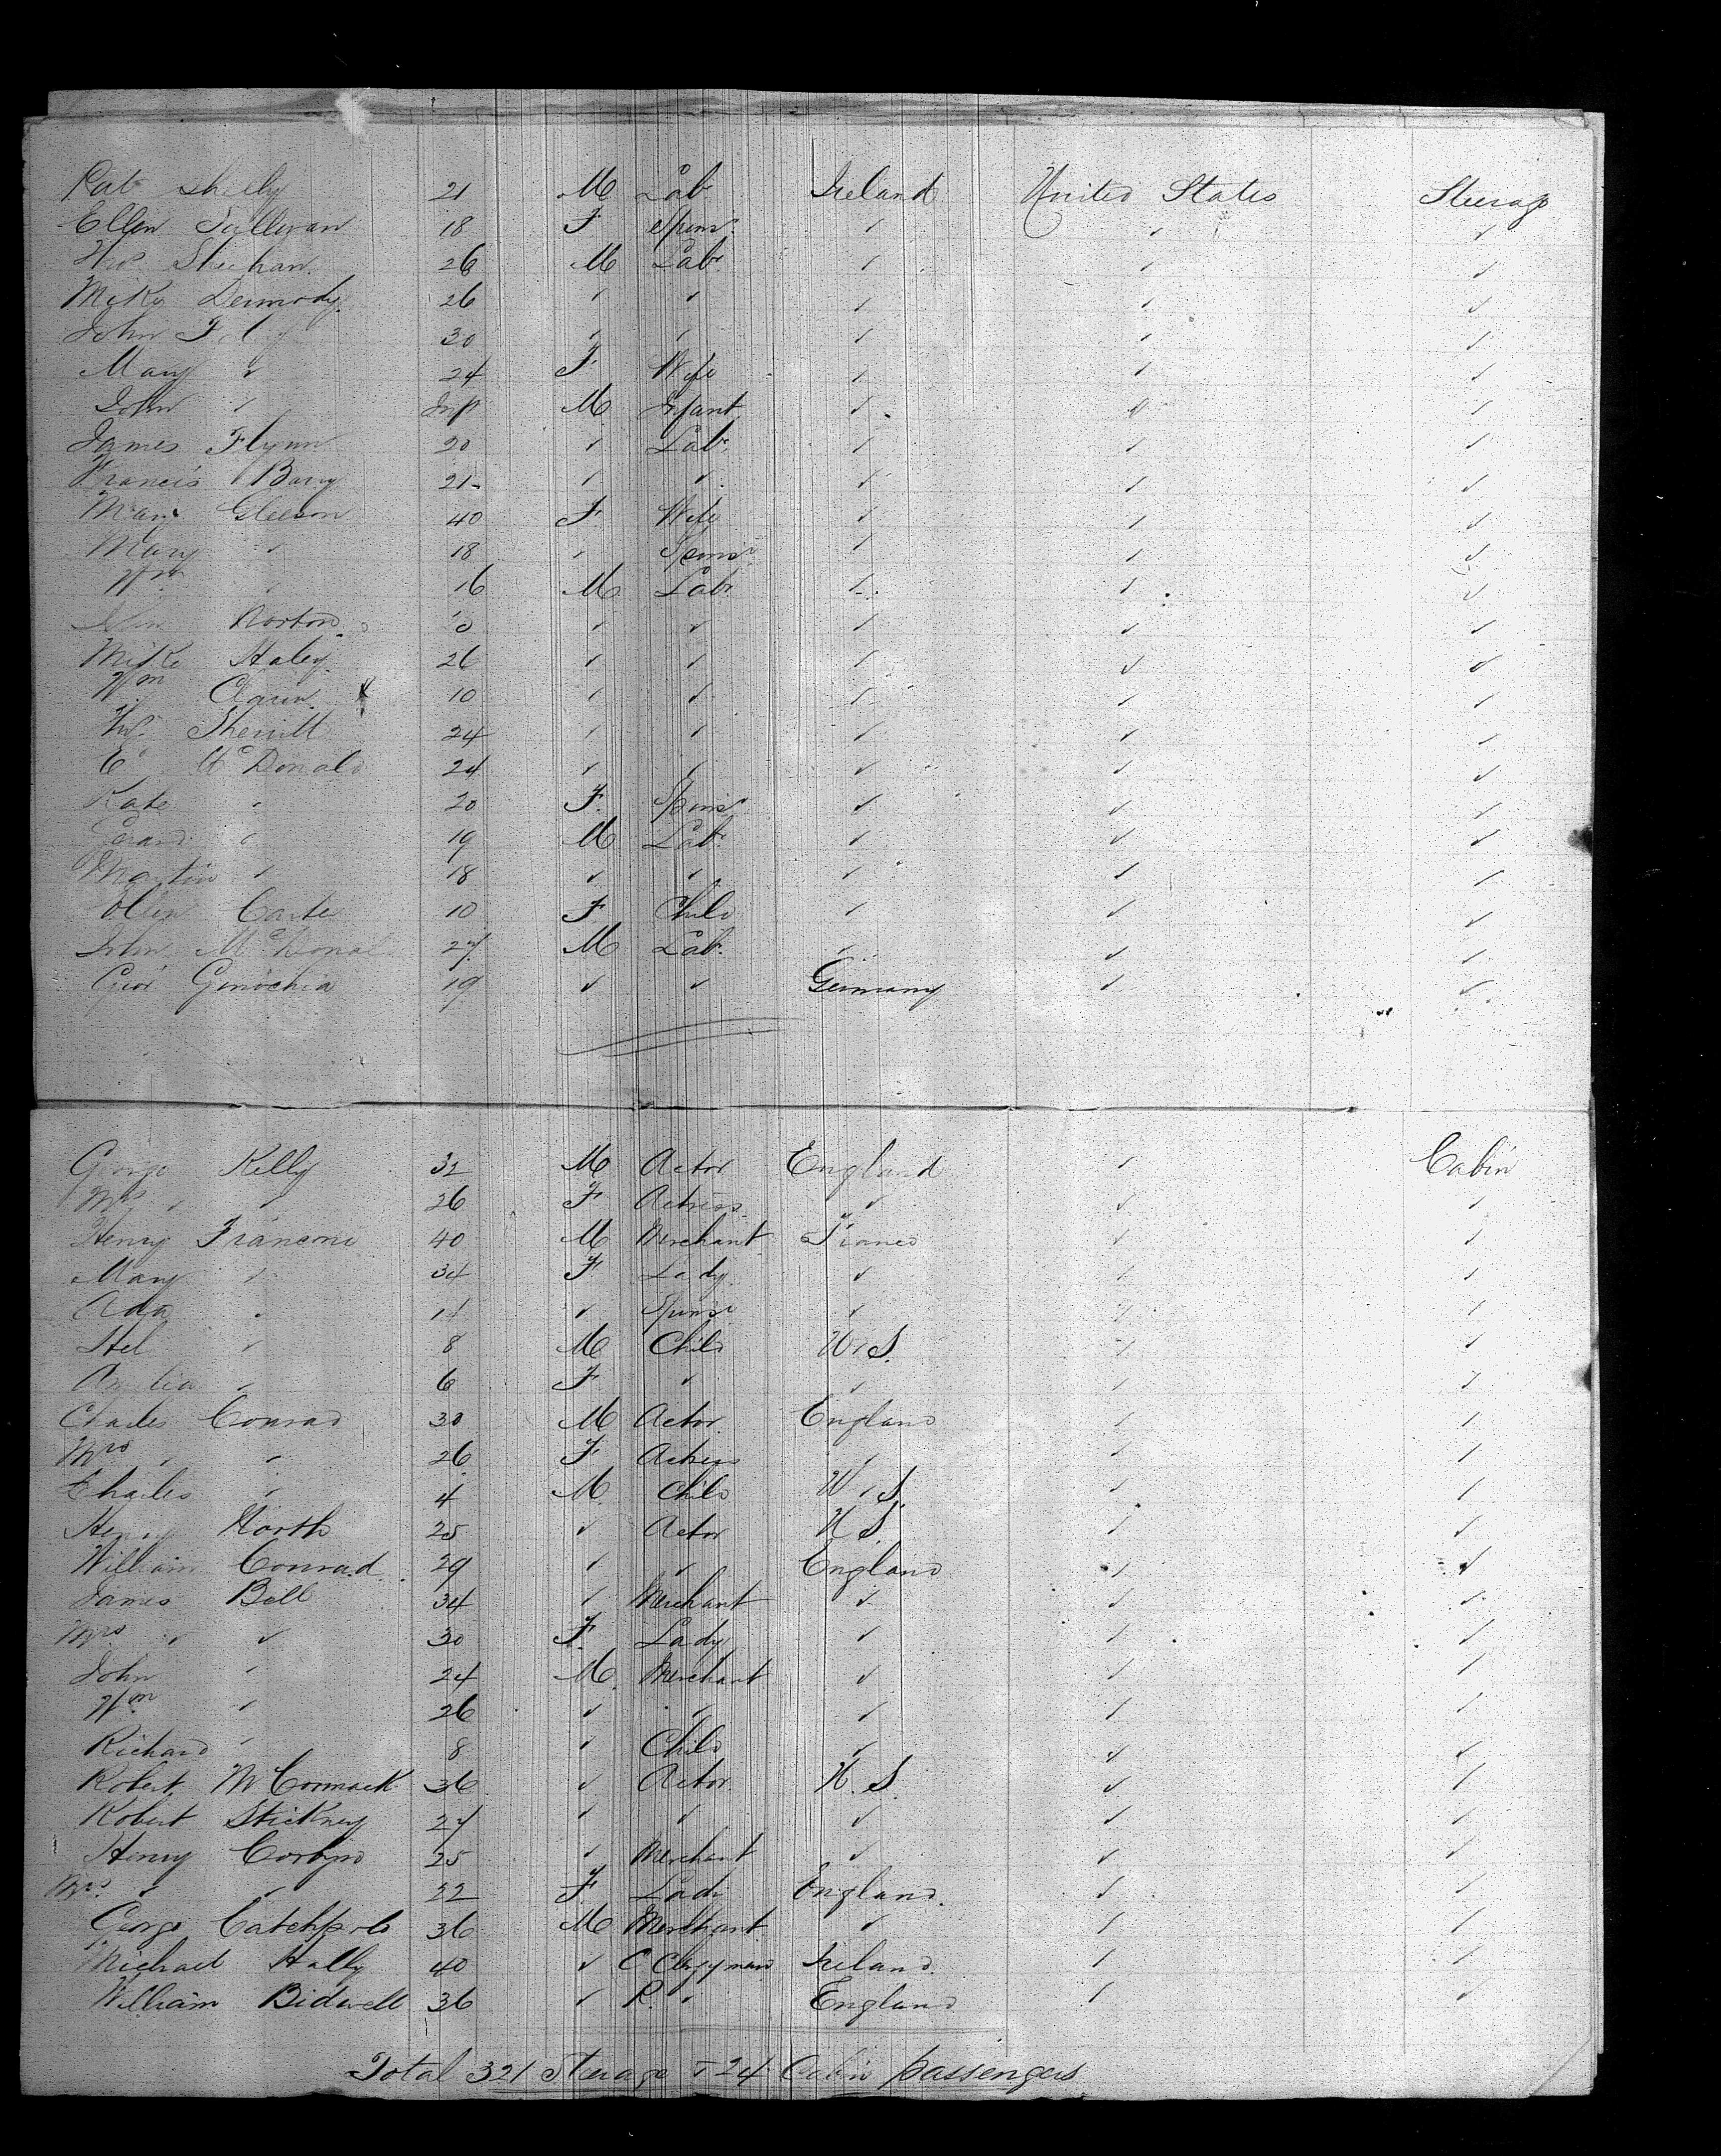 Pat Shelly 21 M Lab Ireland United States Steerage
Ellen Sullivan 18 F Spins ✓ ✓ ✓
Wm Sheehan 26 M Lab ✓ ✓ ✓
Mike Dermody 26 ✓ ✓ ✓ ✓ ✓
John 30 ✓ ✓ ✓ ✓ ✓
Mary ✓ 24 F Wife ✓ ✓ ✓
John ✓ Inf M Infant ✓ ✓ ✓
James Flynn 20 ✓ Lab ✓ ✓ ✓
Francis Barry 21 ✓ ✓ ✓ ✓ ✓
Mary Gleeson 40 F Wife ✓ ✓ ✓
Mary ✓ 18 ✓ Spinsr ✓ ✓ ✓
Wm ✓ 16 M Lab ✓ ✓ ✓
Norton ✓ ✓ ✓ ✓ ✓
Mike Haley 26 ✓ ✓ ✓ ✓ ✓
Wm 10 ✓ ✓ ✓ ✓ ✓
24 ✓ ✓ ✓ ✓ ✓
McDonald 24 ✓ ✓ ✓ ✓ ✓
Kate ✓ 20 F Spinsr ✓ ✓ ✓
✓ 19 M Lab ✓ ✓ ✓
Martin ✓ 18 ✓ ✓ ✓ ✓ ✓
Ellen 10 F Child ✓ ✓ ✓
John McDonal 27 M Lab ✓ ✓ ✓
19 ✓ ✓ Germany ✓ ✓
George Kelly 32 M Actor England ✓ Cabin
Mrs ✓ ✓ 26 F Actress ✓ ✓ ✓
Henry Franconi 40 M Merchant France ✓ ✓
Mary ✓ 34 F Lady ✓ ✓ ✓
Ada ✓ ✓ Spinsr ✓ ✓ ✓
✓ 8 M Child U.S. ✓ ✓
✓ 6 F ✓ ✓ ✓ ✓
Charles Conrad 30 M Actor England ✓ ✓
Mrs ✓ ✓ 26 F Actress ✓ ✓ ✓
Charles ✓ 4 M Child U.S. ✓ ✓
Henry North 25 ✓ Actor U S ✓ ✓
William Conrad 29 ✓ ✓ England ✓ ✓
James Bell 34 ✓ Merchant ✓ ✓ ✓
Mrs ✓ ✓ 30 F Lady ✓ ✓ ✓
John ✓ 24 M Merchant ✓ ✓ ✓
Wm ✓ 26 ✓ ✓ ✓ ✓ ✓
Richard ✓ 8 ✓ Child ✓ ✓ ✓
Robert McCormack 36 ✓ Actor U.S. ✓ ✓
Robert Stickney 27 ✓ ✓ ✓ ✓ ✓
Henry Corbyn 25 ✓ Merchant ✓ ✓ ✓
Mrs ✓ ✓ 22 F Lady England ✓ ✓
George Catchpole 36 M Merchant ✓ ✓ ✓
Michael Hally 40 ✓ C Clergyman Ireland ✓ ✓
William Bidwell 36 ✓ P. ✓ England ✓ ✓
Total 321 Steerage & 24 Cabin passengers